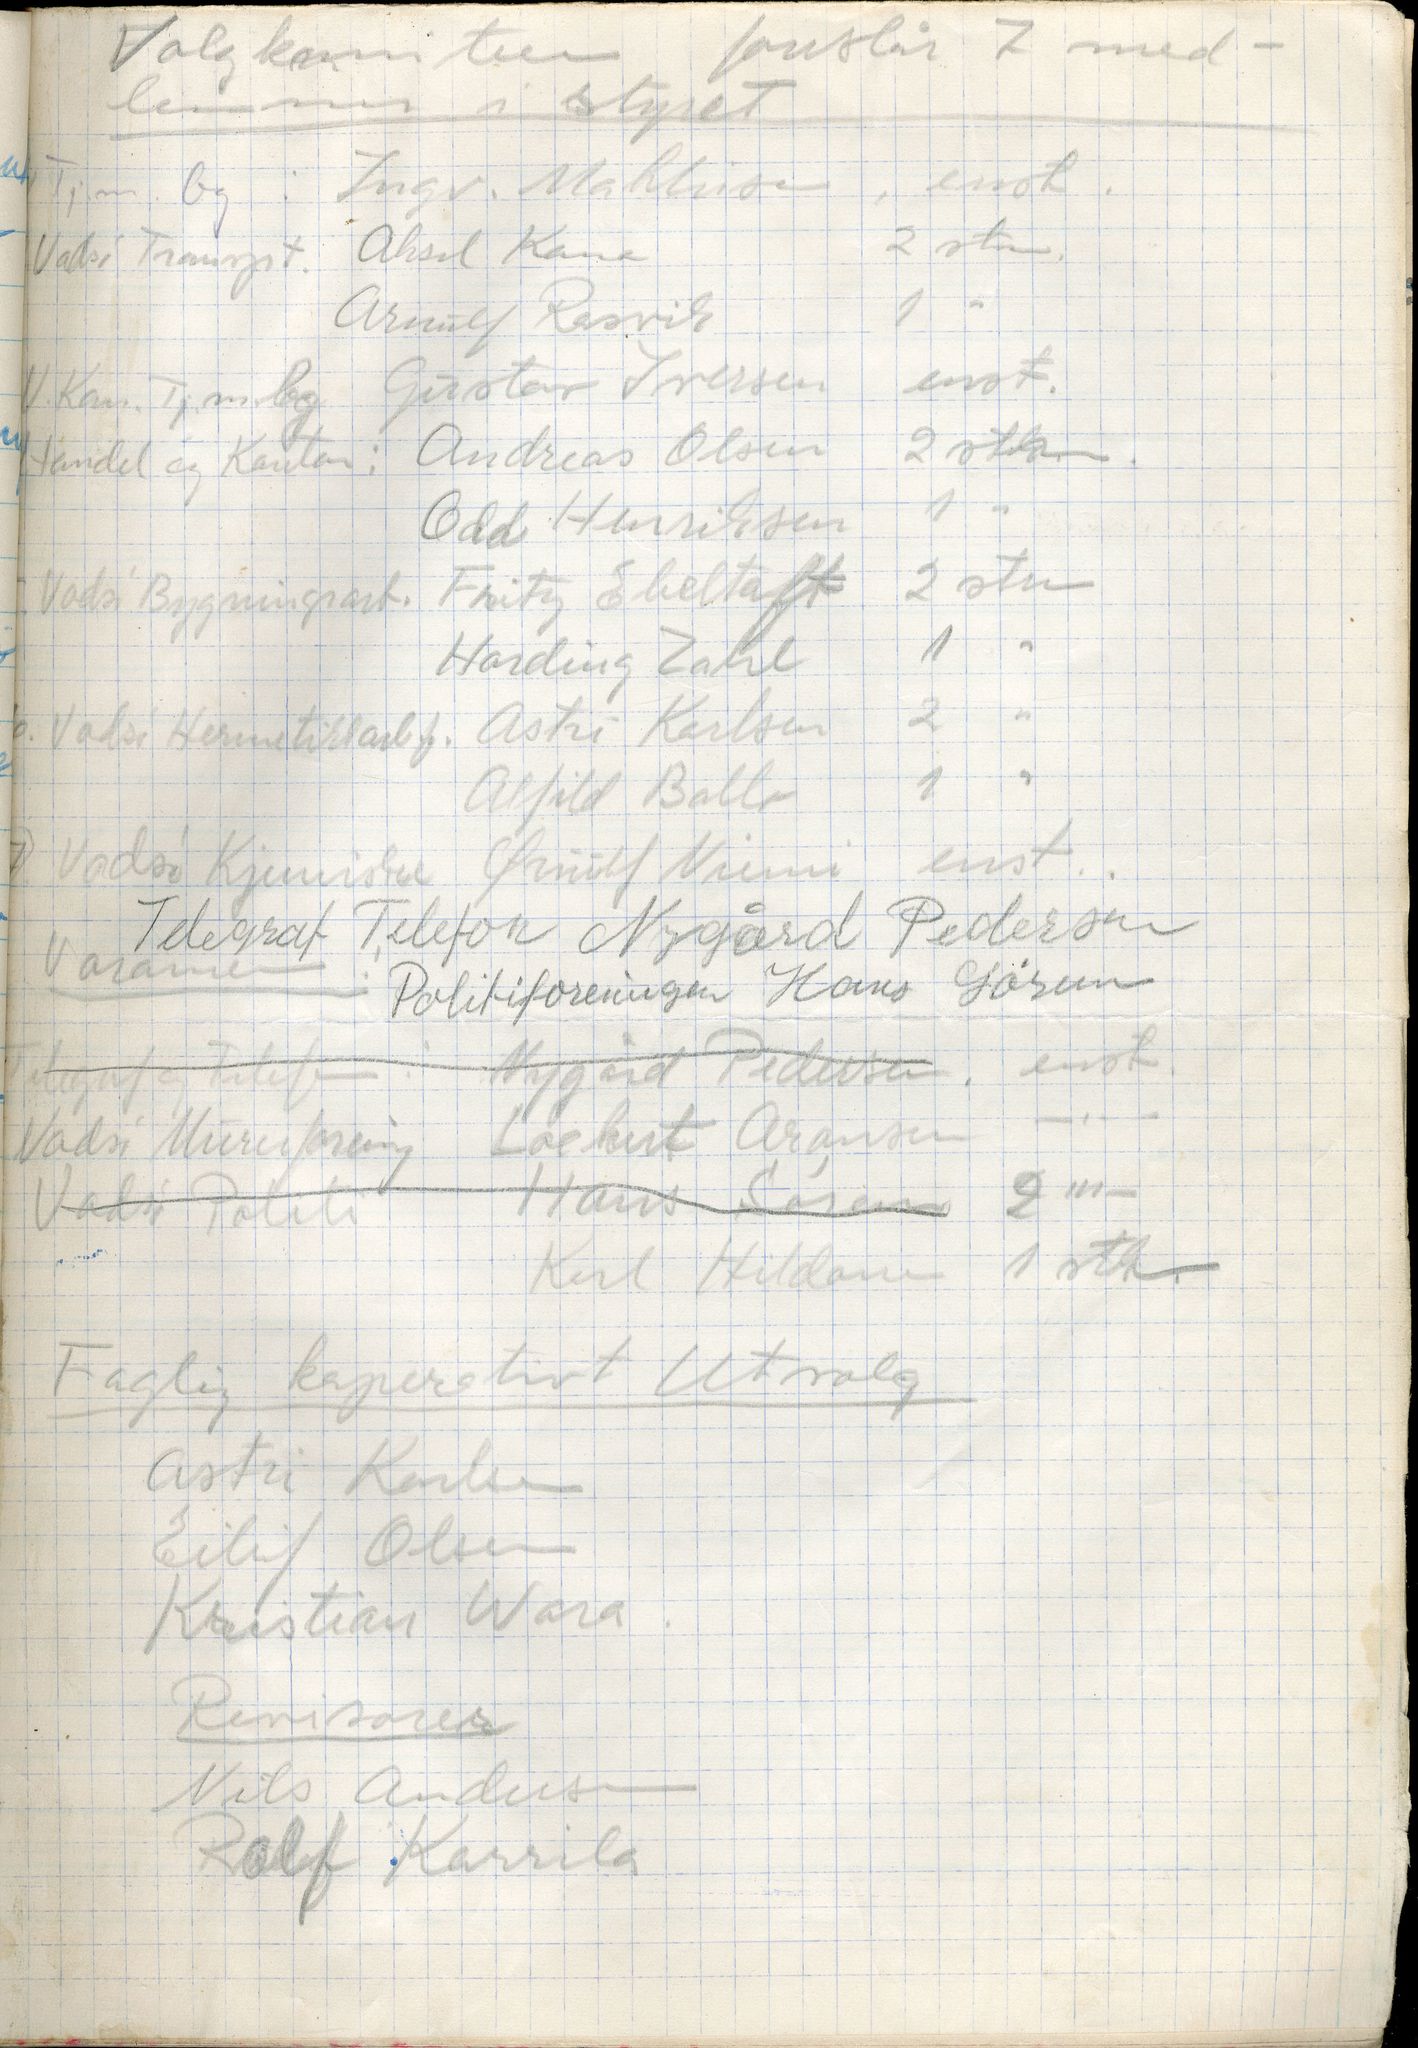 Valgkomiteen foreslår 7 med-
lemmer i styret
Tj.m. lag : Ingv. Mathisen , enst.
Vadsö Transprt. Aksel Kana 2 stm.
Arnulf Rasvik 1 "
V. Kom. Tj.m.lag Gustav Iversen enst.
Handel og Kontor: Andreas Olsen 2 stm.
Odd Henriksen 1 "
Vadsö Bygningsarb. Fritz Ebeltoft 2 stm
Harding Zahl 1 "
Vadsö Hermetikkarbf. Astri Karlsen 2 "
Alfild Balla 1 "
7 Vadsö Kjemiske Ørnulf Niemi enst..
Telegraf Telefon Nygård Pedersen
Varamen : Politiforeningen Hans
Telegraf og Telefon : Nygård Pedersen. enst.
Vadsö Murerforening Lockert Aronsen — " —
Vadsö Politi Hans 2 "
Karl Hildonen 1 stk.
Faglig koperativt Utvalg
Astri Karlsen
Eilif Olsen
Kristian Wara.
Revisorer
Nils Andersen
Rolf Karrila